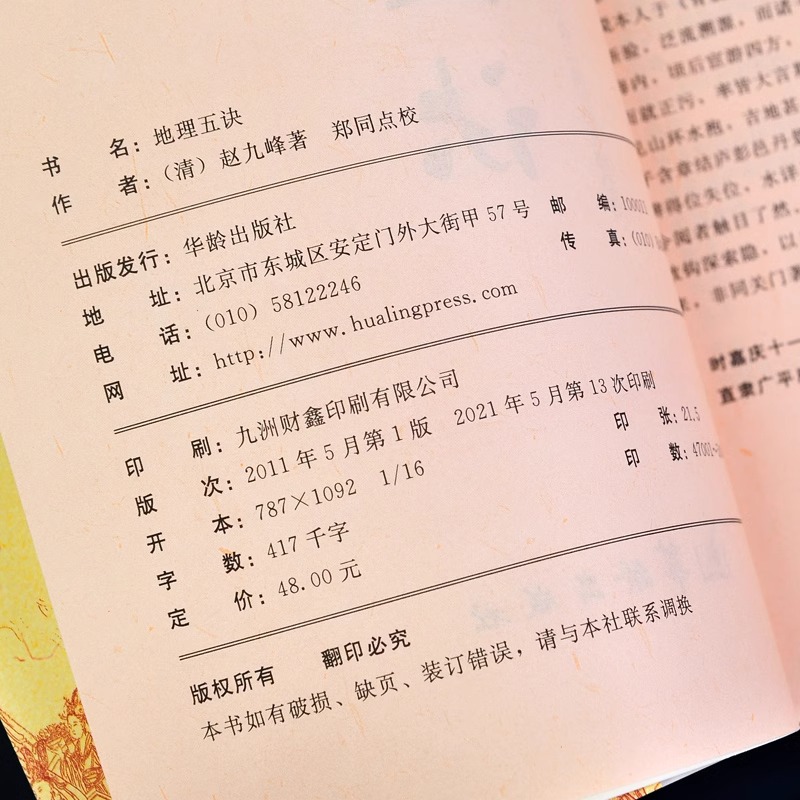 书 名：地理五诀
作 者：（清）赵九峰著 郑同点校
出版发行：华龄出版社
地 址：北京市东城区安定门外大街甲 57 号 邮 编：
电 话：（010）58122246 传 真：
网 址：http://www.hualingpress.com
印 刷：九洲财鑫印刷有限公司
版 次：2011 年 5 月第 1 版 2021 年 5 月第 13 次印刷
开 本：787×1092 1/16 印 张：21.5
字 数：417 千字 印 数：
定 价：48.00 元
版权所有 翻印必究
本书如有破损、缺页、装订错误，请与本社联系调换
泛流溯源，而诸
顷后宦游四方，
就正污，率皆大言
山环水抱，吉地甚
子含章结庐彭邑丹
得位失位，水详
阅者触目了然，
构探索隐，以
非同关门著
时嘉庆十一
直隶广平